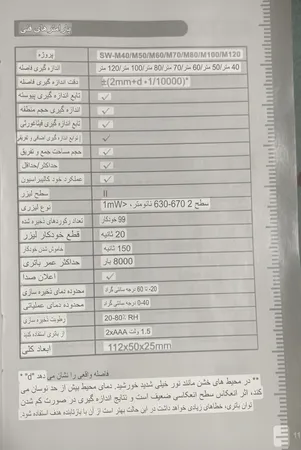 پارامترهای فنی
پروژه SW-M40/M50/M60/M70/M80/M100/M120
اندازه گیری فاصله 40 متر/50 متر/60 متر/70 متر/80 متر/100 متر/120 متر
دقت اندازه گیری فاصله ±(2mm+d*1/10000)*
تابع اندازه گیری پیوسته ✓
اندازه گیری حجم منطقه ✓
تابع اندازه گیری فیثاغورثی ✓
تابع اندازه گیری اضافی و تفریقی ✓
حجم مساحت جمع و تفریق ✓
حداکثر/حداقل ✓
عملکرد خود کالیبراسیون ✓
سطح لیزر II
نوع لیزری سطح 2 630-670 نانومتر، <1mW
تعداد رکوردهای ذخیره شده 99 خودکار
قطع خودکار لیزر 20 ثانیه
خاموش شدن خودکار 150 ثانیه
حداکثر عمر باتری 8000 بار
اعلان صدا ✓
محدوده دمای ذخیره سازی -20~60 درجه سانتی گراد
محدوده دمای عملیاتی 0-40 درجه سانتی گراد
رطوبت ذخیره سازی 20-80% RH
از باتری استفاده کنید 1.5 ولت 2xAAA
ابعاد کلی 112x50x25mm
* "d" فاصله واقعی را نشان می دهد
** در محیط های خشن مانند نور خیلی شدید خورشید، دمای محیط بیش از حد نوسان می
کند، اثر انعکاس سطح انعکاسی ضعیف است و نتایج اندازه گیری در صورت کم شدن
توان باتری، خطاهای زیادی خواهد داشت در این حالت بهتر است از آن با بازتابنده هدف استفاده شود.
11